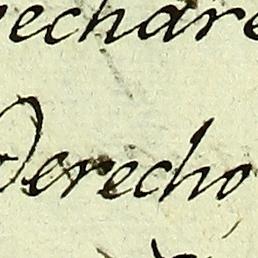 echare
Derecho